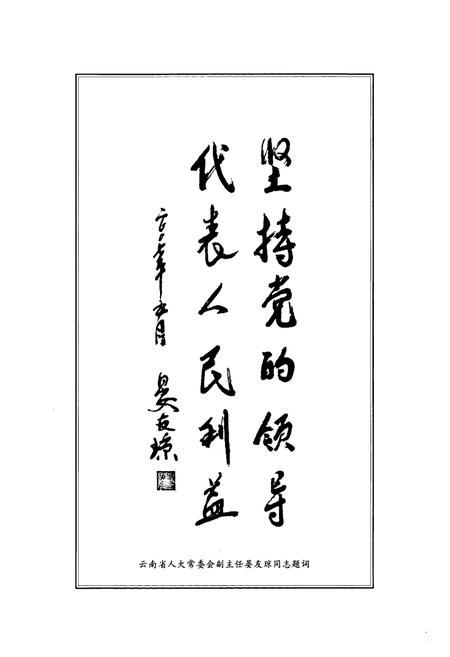 坚持党的领导
代表人民利益
二〇〇七年五月
晏友琼
云南省人大常委会副主任晏友琼同志题词